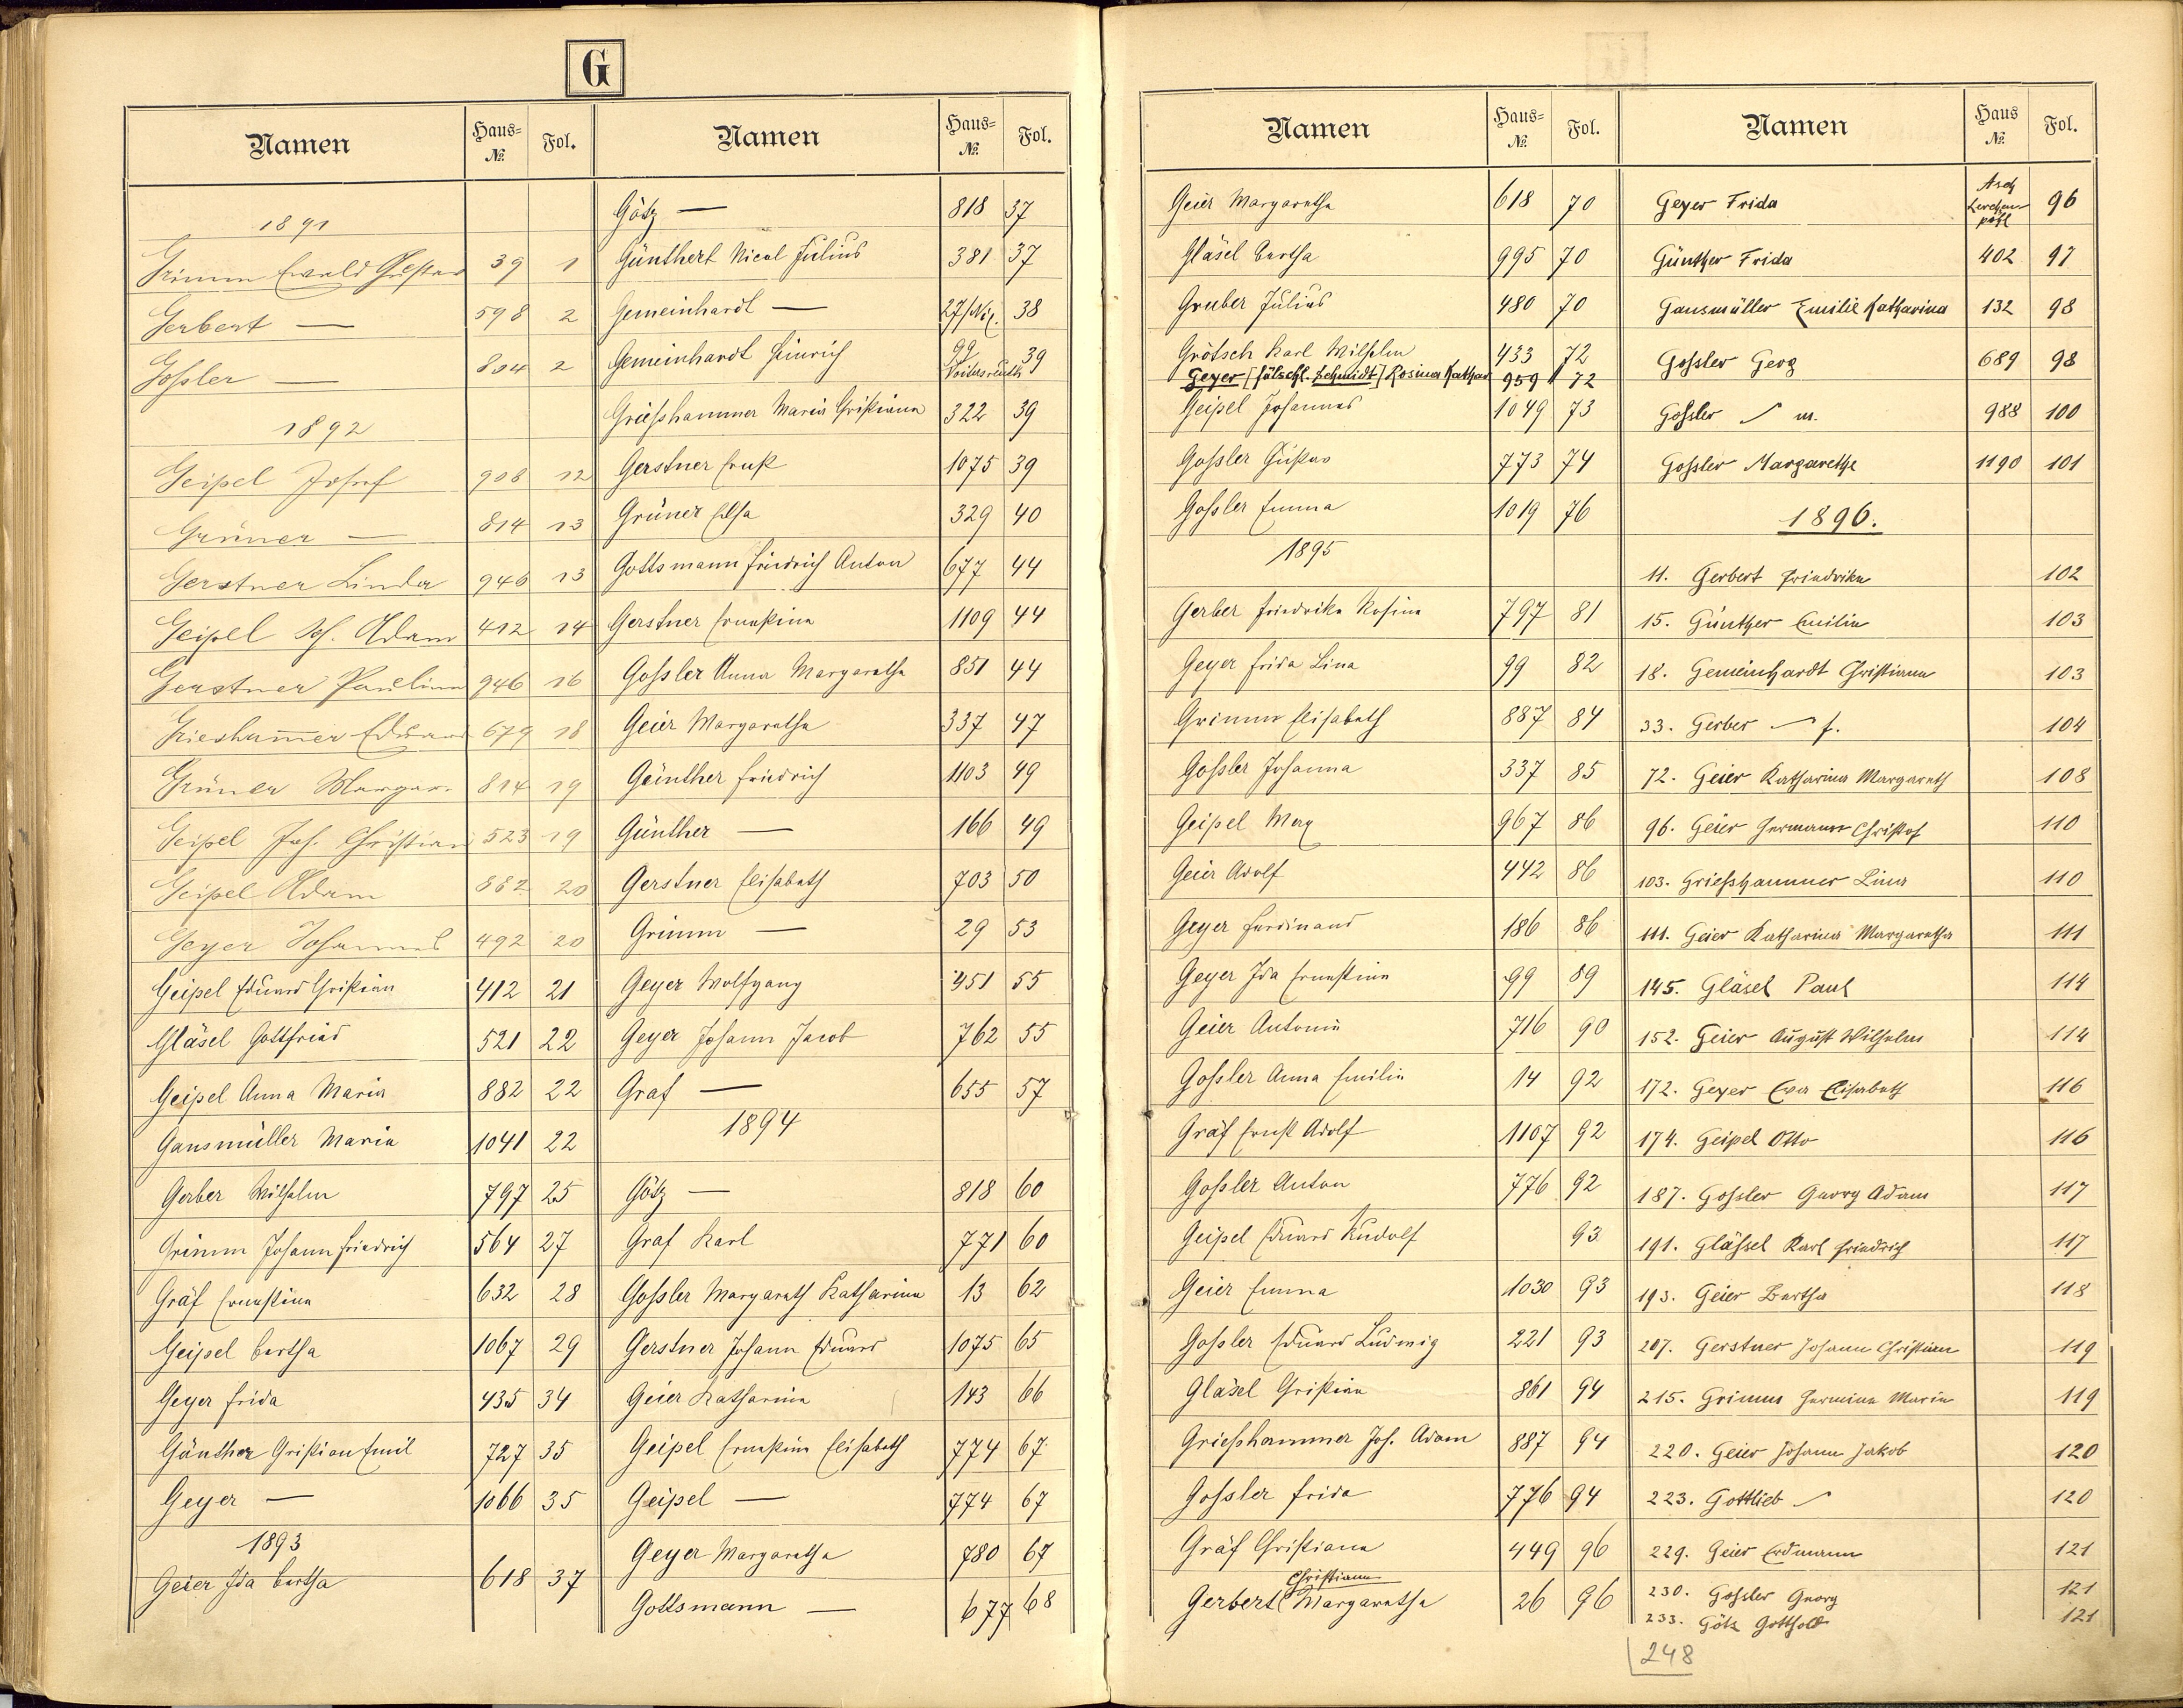 G
Namen Haus-No. Fol.
1891
Grimm Ewald Gustav 39 1
Gerbert — 598 2
Goßler — 804 2
1892
Geipel Josef 908 12
Grüner — 814 13
Gerstner Linda 946 13
Geipel Joh. Adam 412 14
Gerstner Paulina 946 16
Griesham̅er Eduard 679 18
Grüner Margar. 814 19
Geipel Joh. Christian 523 19
Geipel Adam 882 20
Geyer Johannes 492 20
Geipel Eduard Christian 412 21
Gläsel Gottfried 521 22
Geipel Anna Maria 882 22
Gansmüller Maria 1041 22
Gerber Wilhelm 797 25
Grimm Johann Friedrich 564 27
Gräf Ernestine 632 28
Geipel Bertha 1067 29
Geyer Frida 435 34
Günther Christian Emil 727 35
Geyer — 1066 35
1893
Geier Ida Bertha 618 37
Namen Haus-No. Fol.
Götz — 818 37
Günthert Nicol Julius 381 37
Gemeinhardt — 27/Nß. 38
Gemeinhardt Heinrich 99 Voitersreuth 39
Grießhammer Maria Christiana 322 39
Gerstner Ernst 1075 39
Grüner Elsa 329 40
Gottsmann Friedrich Anton 677 44
Gerstner Ernestine 1109 44
Goßler Anna Margaretha 851 44
Geier Margaretha 337 47
Günther Friedrich 1103 49
Günther — 166 49
Gerstner Elisabeth 703 50
Grimm — 29 53
Geyer Wolfgang 951 55
Geyer Johann Jacob 762 55
Graf — 655 57
1894
Götz — 818 60
Graf Karl 771 60
Goßler Margareth Katharina 13 62
Gerstner Johann Eduard 1075 65
Geier Katharina 143 66
Geipel Ernestine Elisabeth 774 67
Geipel — 774 67
Geyer Margaretha 780 67
Gottsmann — 677 68
Namen Haus-No. Fol.
Geier Margaretha 618 70
Gläsel Bertha 995 70
Gruber Julius 480 70
Grötsch Karl Wilhelm 433 72
Geyer [fälschl. Schmidt] Rosina Kathar 959 72
Geipel Johannes 1049 73
Goßler Gustav 773 74
Goßler Emma 1019 76
1895
Gerber Friedrike Rosina 797 81
Geyer Frida Lina 99 82
Grimm Elisabeth 887 84
Goßler Johanna 337 85
Geipel Max 967 86
Geier Adolf 442 86
Geyer Ferdinand 186 86
Geyer Ida Ernestine 99 89
Geier Antonie 716 90
Goßler Anna Emilie 14 92
Gräf Ernst Adolf 1107 92
Goßler Anton 776 92
Geipel Eduard Rudolf 93
Geier Emma 1030 93
Goßler Eduard Ludwig 221 93
Gläsel Christian 861 94
Grießhammer Joh. Adam 887 94
Goßler Frida 776 94
Gräf Christiana 449 96
Christiana
Gerbert Margaretha 26 96
Namen Haus No. Fol.
Geyer Frida Asch Lerchenpöhl 96
Günther Frida 402 97
Gansmüller Emilie Katharina 132 98
Goßler Georg 689 98
Goßler — m. 988 100
Goßler Margarethe 1190 101
1896.
11. Gerbert Friedrike 102
15. Günther Emilie 103
18. Gemeinhardt Christiana 103
33. Gerber — f. 104
72. Geier Katharina Margareth 108
96. Geier Hermann Christof 110
103. Grießhammer Lina 110
111. Geier Katharina Margaretha 111
145. Gläsel Paul 114
152. Geier August Wilhelm 114
172. Geyer Eva Elisabeth 116
174. Geipel Otto 116
187. Goßler Georg Adam 117
191. Gläßel Karl Friedrich 117
193. Geier Bertha 118
207. Gerstner Johann Christian 119
215. Grimm Hermine Marie 119
220. Geier Johann Jakob 120
223. Gottlieb — 120
229. Geier Erdmann 121
230. Goßler Georg 121
233. Götz Gotthold 121
248